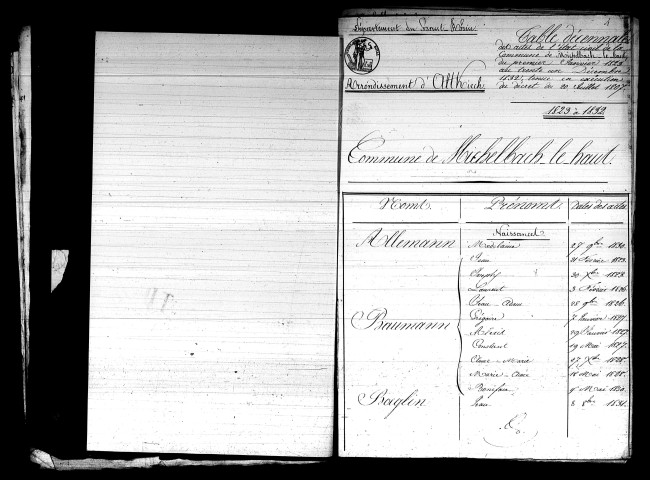 Département du Haut Rhin
Table décennale
des actes de l'état civil de la
Commune de Michelbach le haut
du premier Janvier 1823
au trente un Décembre
1832, tenue en exécution
du décret du 20 Juillet 1807.
Arrondissement d'Altkirch
1823 à 1832
Commune de Michelbach le haut.
Noms. Prénoms. Dates des actes.
Naissances
Allemann Madelaine 27 9bre 1830.
Jean 21 1823.
Joseph 30 Xbre 1823.
Laurent 3 Février 1826.
Jean-Adam 25 9bre 1826.
Grégoire 7 Janvier 1827.
Baumann 29 Janvier 1827.
Constant 19 Mai 1827.
Marie 27 Xbre 1828.
Marie-Anne 18 Mai 1828.
Boniface 9 Mai 1830.
Baglin Jean 2 8bre 1831.